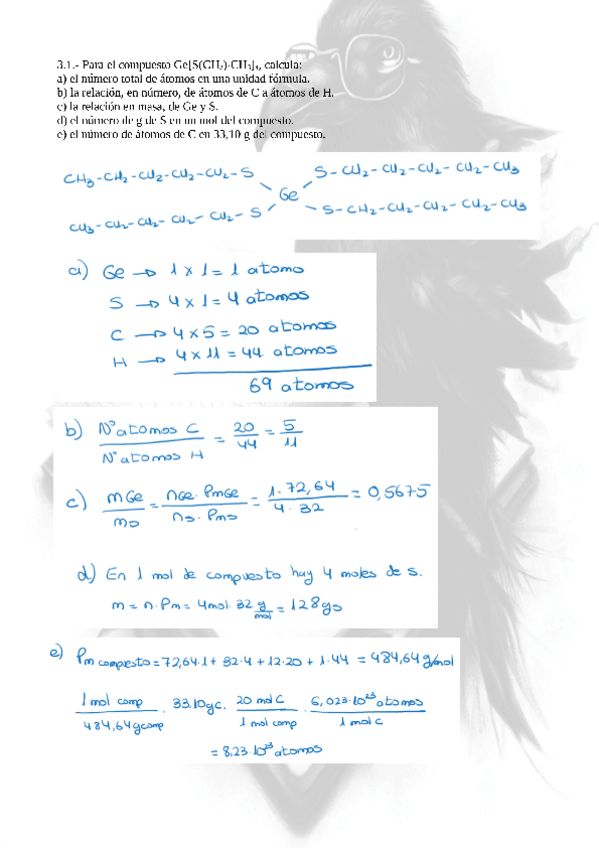 3.1.- Para el compuesto Ge[S(CH₂)₄CH₃]₄, calcula:
a) el número total de átomos en una unidad fórmula.
b) la relación, en número, de átomos de C a átomos de H.
c) la relación en masa, de Ge y S.
d) el número de g de S en un mol del compuesto.
e) el número de átomos de C en 33,10 g del compuesto.
CH₃-CH₂-CH₂-CH₂-CH₂-S S-CH₂-CH₂-CH₂-CH₂-CH₃
Ge
CH₃-CH₂-CH₂-CH₂-CH₂-S S-CH₂-CH₂-CH₂-CH₂-CH₃
a) Ge → 1 x 1 = 1 atomo
S → 4 x 1 = 4 atomos
C → 4 x 5 = 20 atomos
H → 4 x 11 = 44 atomos
69 atomos
b) Nº atomos C / Nº atomos H = 20/44 = 5/11
c) mGe/ms = nGe·PmGe / ns·Pms = 1·72,64 / 4·32 = 0,5675
d) En 1 mol de compuesto hay 4 moles de s.
m = n·Pm = 4mol·32 g/mol = 128gs
e) Pm compuesto = 72,64·1 + 32·4 + 12·20 + 1·44 = 484,64 g/mol
1 mol comp / 484,64g comp · 33,10gc. · 20 mol C / 1 mol comp · 6,023·10²³ atomos / 1 mol c
= 8,23·10²³ atomos